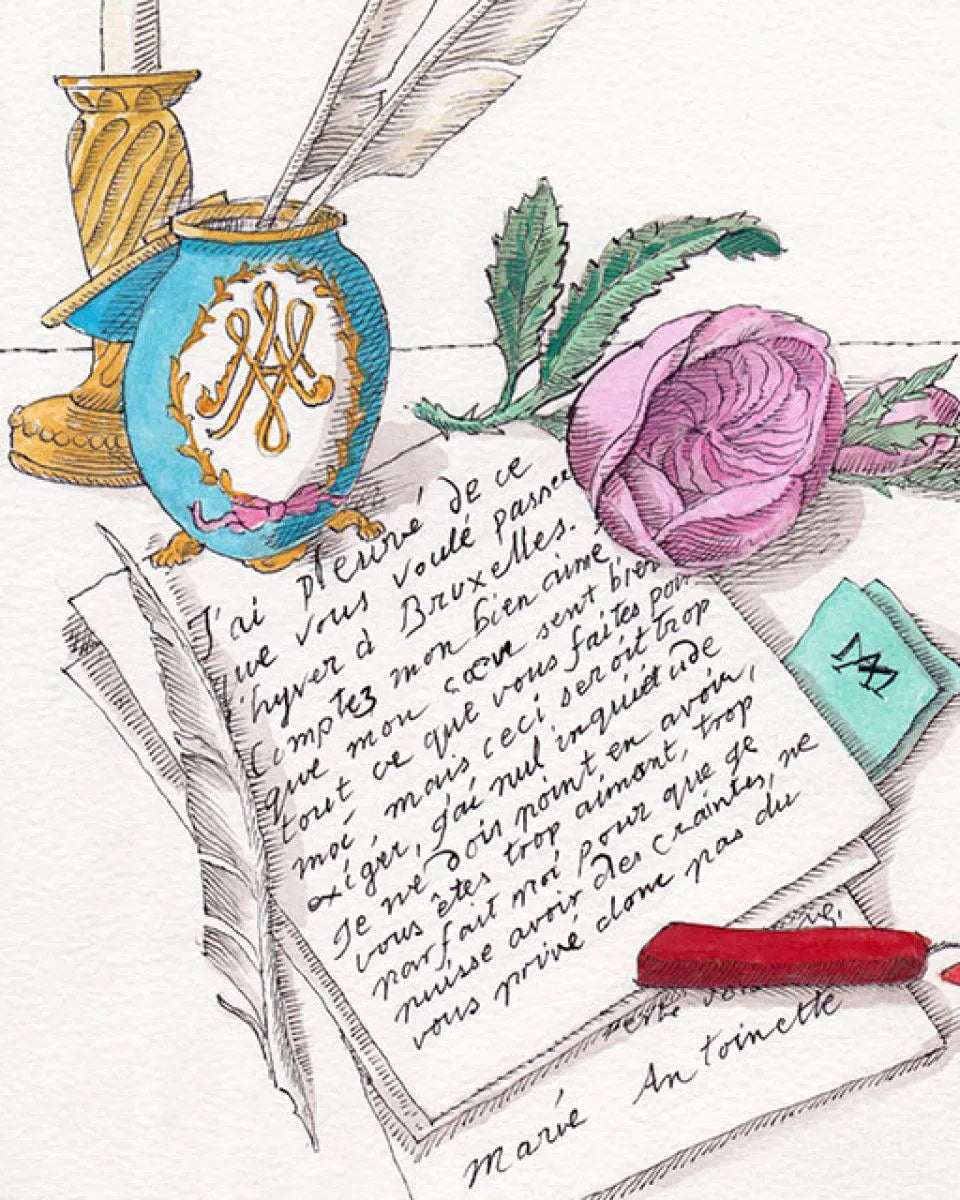 J'ai pleuré de ce
que vous voulé passer
l'hyver à Bruxelles.
Comptez mon bien aimé
que mon cœur sent bien
tout ce que vous faites pour
moé, mais ceci seroit trop
exiger, j'ai nul inquiétude
Je ne doir point en avoir,
vous êtes trop aimant, trop
parfait moi pour que je
puisse avoir des craintes, ne
vous privé donc pas du
Marie Antoinette
MA
MA